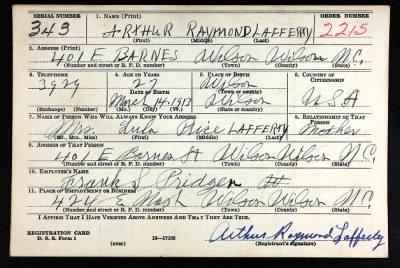 SERIAL NUMBER 1. NAME (Print) ORDER NUMBER
343 ARTHUR RAYMOND LAFFERTY 2215
(First) (Middle) (Last)
2. ADDRESS (Print)
401 E BARNES Wilson Wilson N.C.
(Number and street or R. F. D. number) (Town) (County) (State)
3. TELEPHONE 4. AGE IN YEARS 5. PLACE OF BIRTH 6. COUNTRY OF CITIZENSHIP
3929 27 Wilson
DATE OF BIRTH (Town or county)
March 14-1913 Wilson U S A
(Exchange) (Number) (Mo.) (Day) (Yr.) (State or country)
7. NAME OF PERSON WHO WILL ALWAYS KNOW YOUR ADDRESS 8. RELATIONSHIP OF THAT PERSON
Mrs. Lula Rice LAFFERTY Mother
(Mr., Mrs., Miss) (First) (Middle) (Last)
9. ADDRESS OF THAT PERSON
401 E Barnes St Wilson Wilson N.C.
(Number and street or R. F. D. number) (Town) (County) (State)
10. EMPLOYER'S NAME
Frank S Pridgen
11. PLACE OF EMPLOYMENT OR BUSINESS
424 E Nash Wilson Wilson N.C.
(Number and street or R. F. D. number) (Town) (County) (State)
I AFFIRM THAT I HAVE VERIFIED ABOVE ANSWERS AND THAT THEY ARE TRUE.
REGISTRATION CARD
D. S. S. Form 1 (over) 16—17105 Arthur Raymond Lafferty
(Registrant's signature)